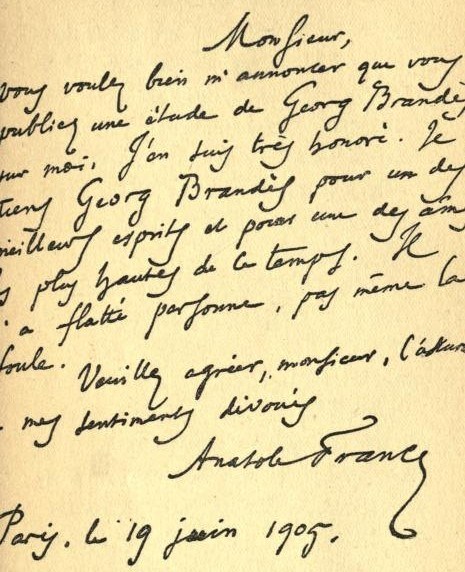 Monsieur,
vous voulez bien m'annoncer que vous
publiez une étude de Georg Brandès
sur moi. J'en suis très honoré. Je
tiens Georg Brandès pour un des
meilleurs esprits et pour une des âmes
les plus hautes de ce temps. Il
n'a flatté personne, pas même la
foule. Veuillez agréer, monsieur, l'assur
mes sentiments dévoués
Anatole France
Paris, le 19 juin 1905.